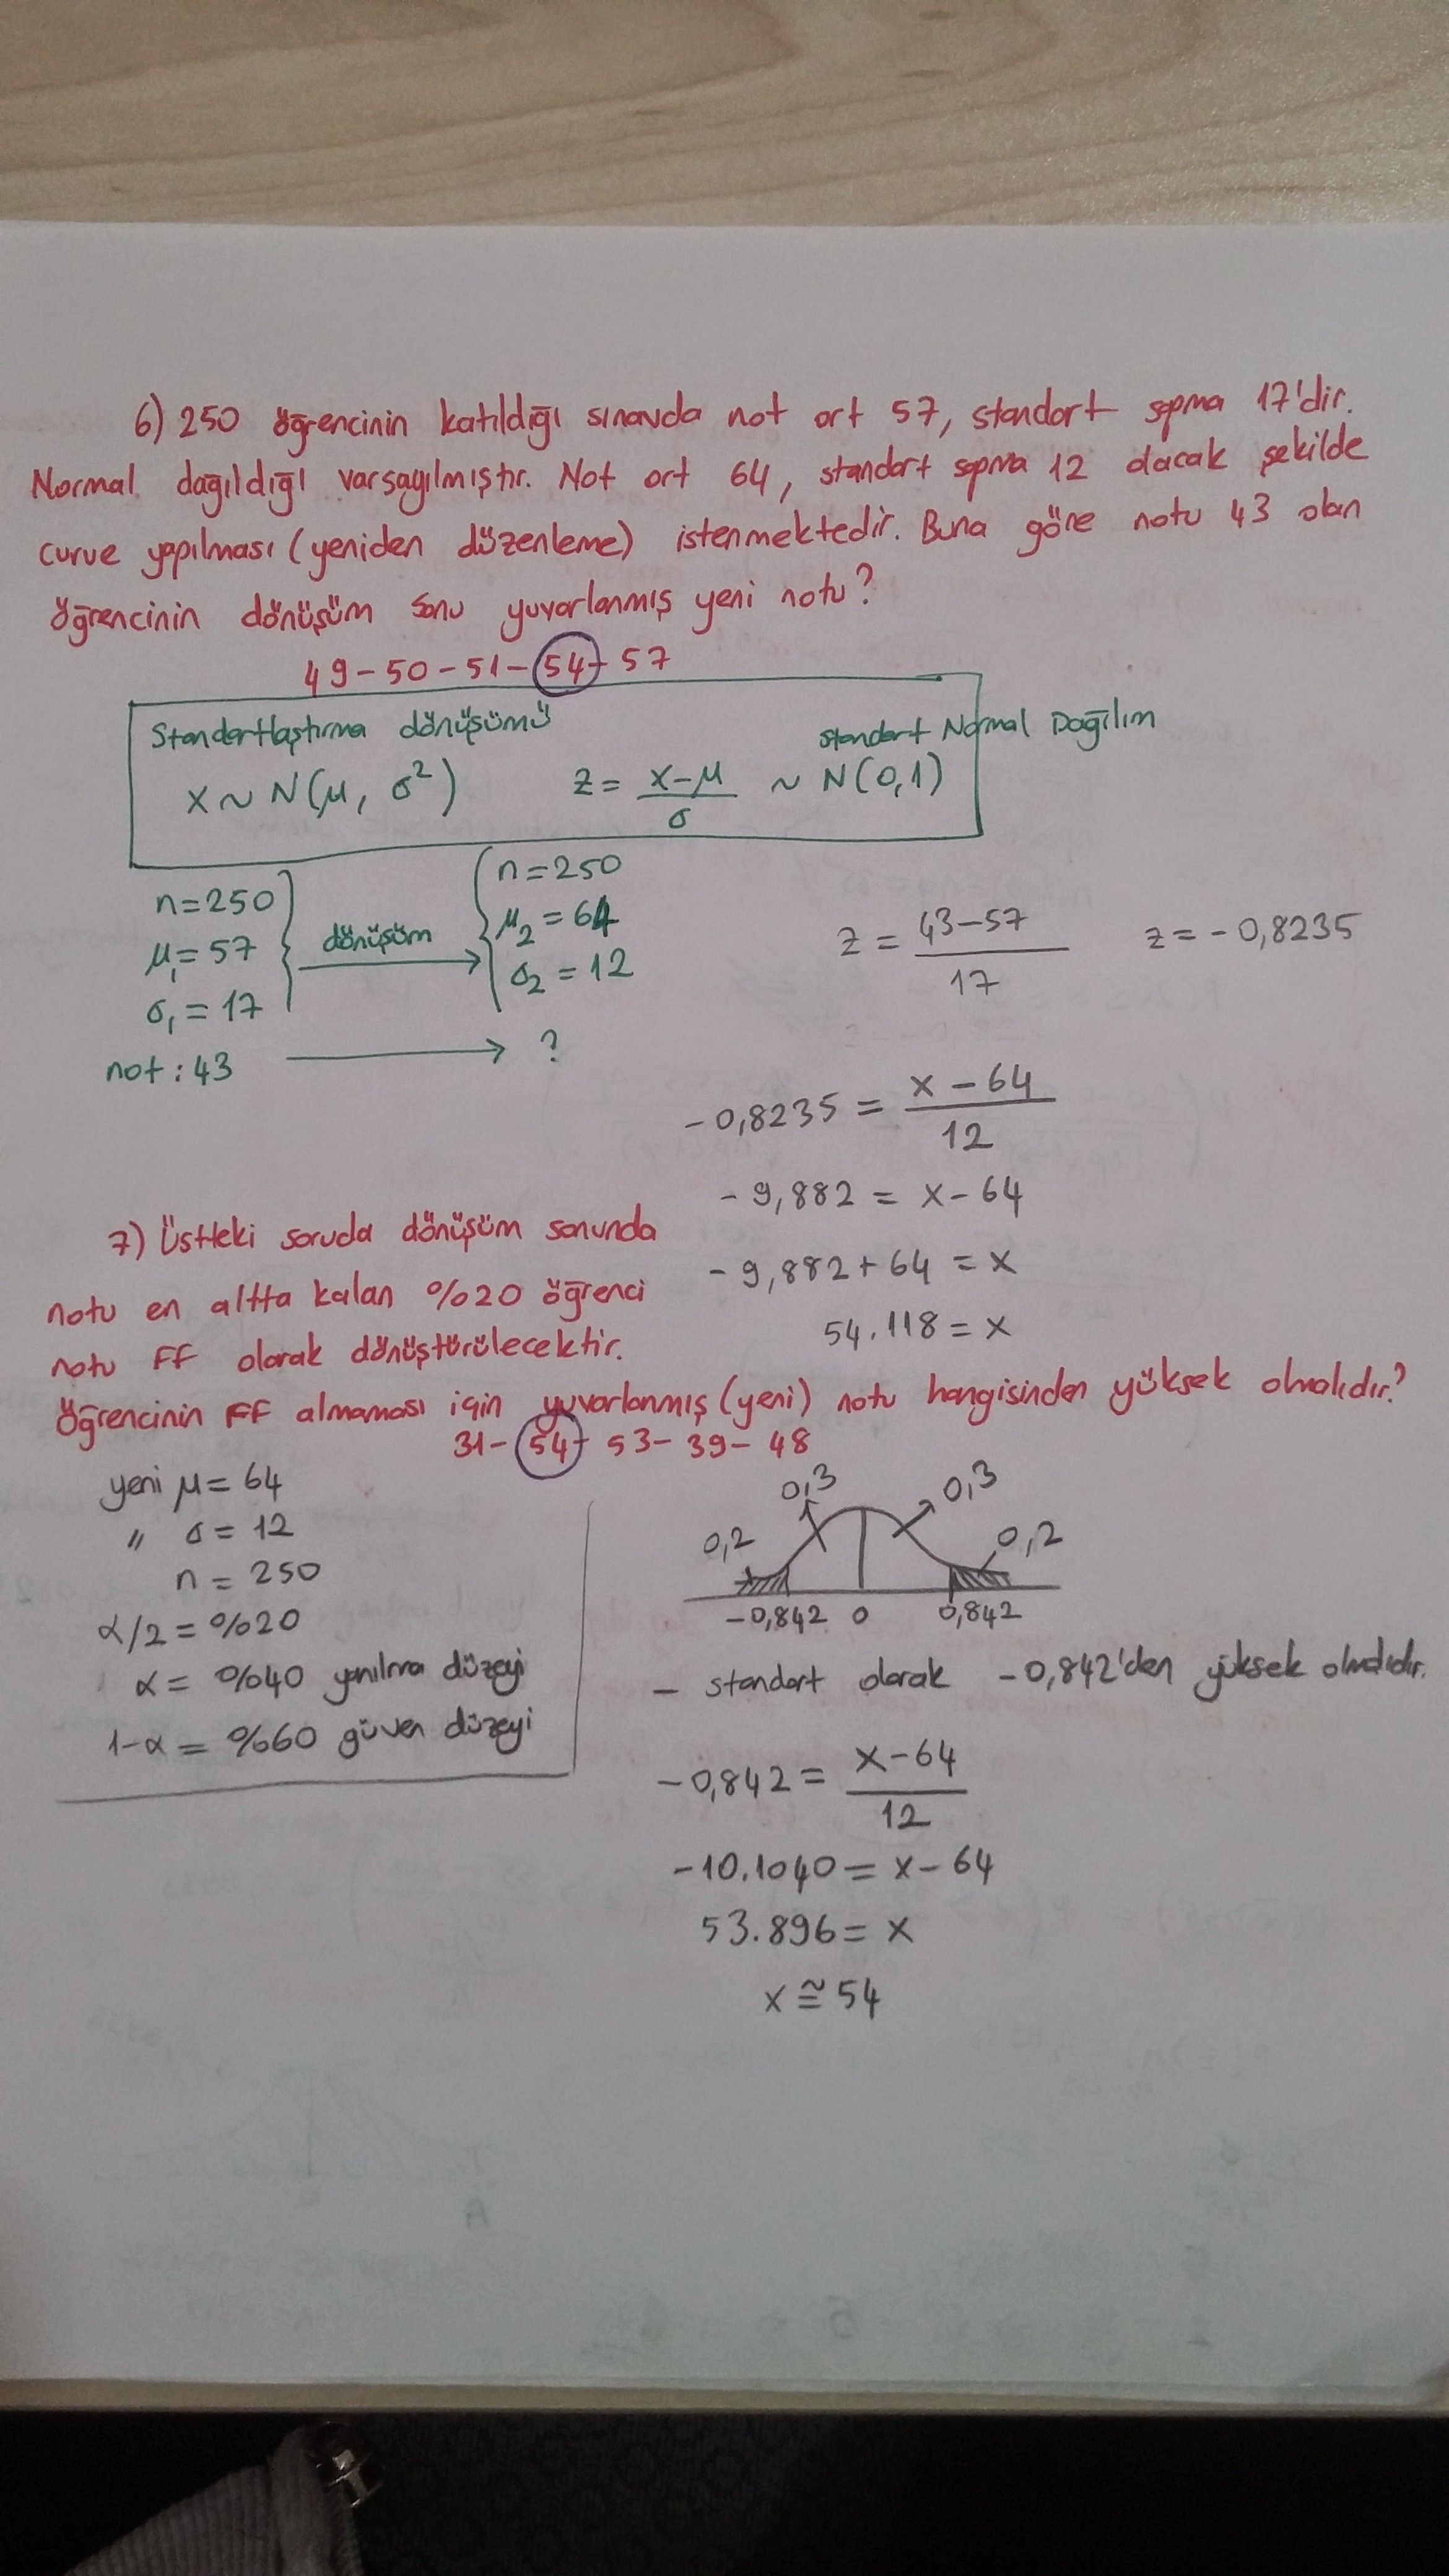 6) 250 öğrencinin katıldığı sınavda not ort 57, standart sapma 17'dir.
Normal dağıldığı varsayılmıştır. Not ort 64, standart sapma 12 olacak şekilde
curve yapılması (yeniden düzenleme) istenmektedir. Buna göre notu 43 olan
öğrencinin dönüşüm sonu yuvarlanmış yeni notu?
49 - 50 - 51 - 54 - 57
Standartlaştırma dönüşümü
standart Normal Dağılım
X ~ N(μ, σ²) z = x-μ / σ ~ N(0,1)
n=250
μ₁=57
σ₁=17
dönüşüm
n=250
μ₂=64
σ₂=12
not: 43 → ?
z = 43-57 / 17 z = -0,8235
-0,8235 = x-64 / 12
-9,882 = x-64
-9,882+64 = x
54.118 = x
7) Üstteki soruda dönüşüm sonunda
notu en altta kalan %20 öğrenci
notu FF olarak dönüştürülecektir.
Öğrencinin FF almaması için yuvarlanmış (yeni) notu hangisinden yüksek olmalıdır?
31 - 54 - 53 - 39 - 48
yeni μ = 64
" σ = 12
n = 250
α/2 = %20
α = %40 yanılma düzeyi
1-α = %60 güven düzeyi
0,3 0,3
0,2 0,2
-0,842 0 0,842
- standart olarak -0,842'den yüksek olmalıdır.
-0,842 = x-64 / 12
-10.1040 = x-64
53.896 = x
x ≅ 54